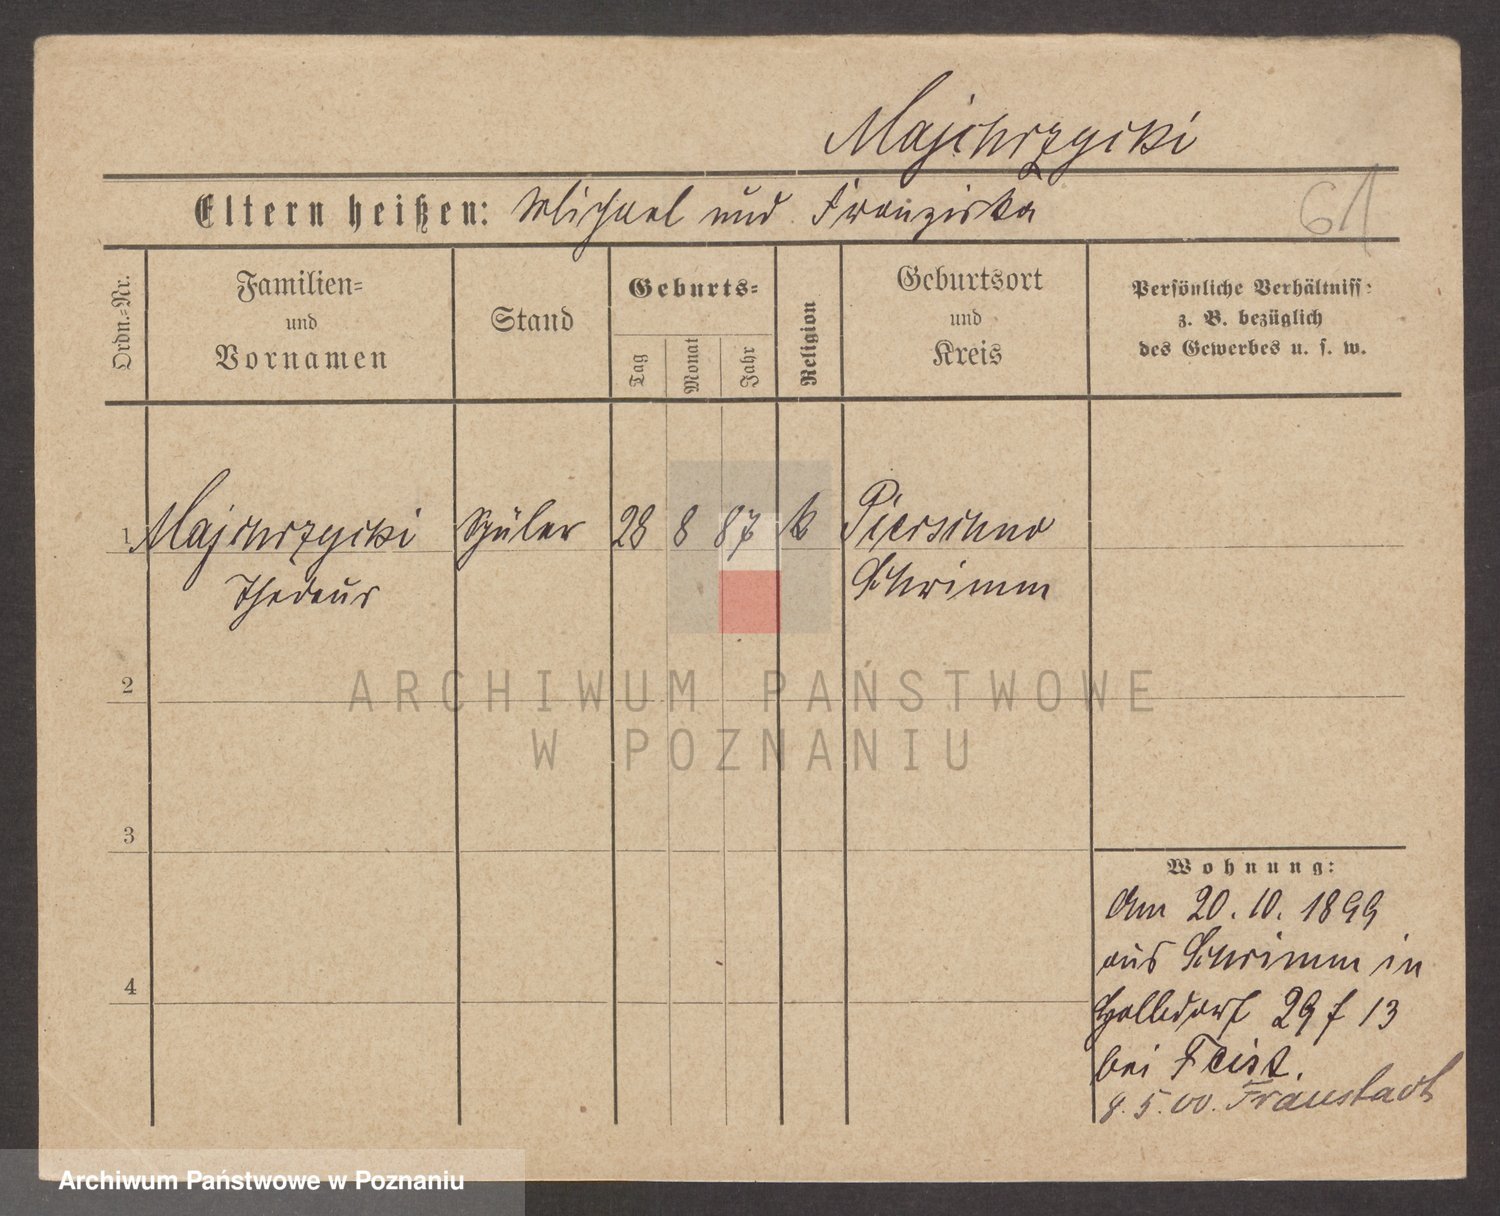 Majchrzycki
Eltern heißen: Michael und Franziska
61
Ordn.-Nr.
Familien-
und
Vornamen
Stand
Geburts-
Tag
Monat
Jahr
Religion
Geburtsort
und
Kreis
Persönliche Verhältniss:
z. B. bezüglich
des Gewerbes u. s. w.
1 Majchrzycki Schüler 28 8 87 k Pierschno
Thedeus Schrimm
2
3
4
Wohnung:
Am 20. 10. 1899
aus Schrimm in
Halbdorf 29 f 13
bei Feist.
8. 5. 00. Fraustadt
ARCHIWUM PAŃSTWOWE
W POZNANIU
Archiwum Państwowe w Poznaniu